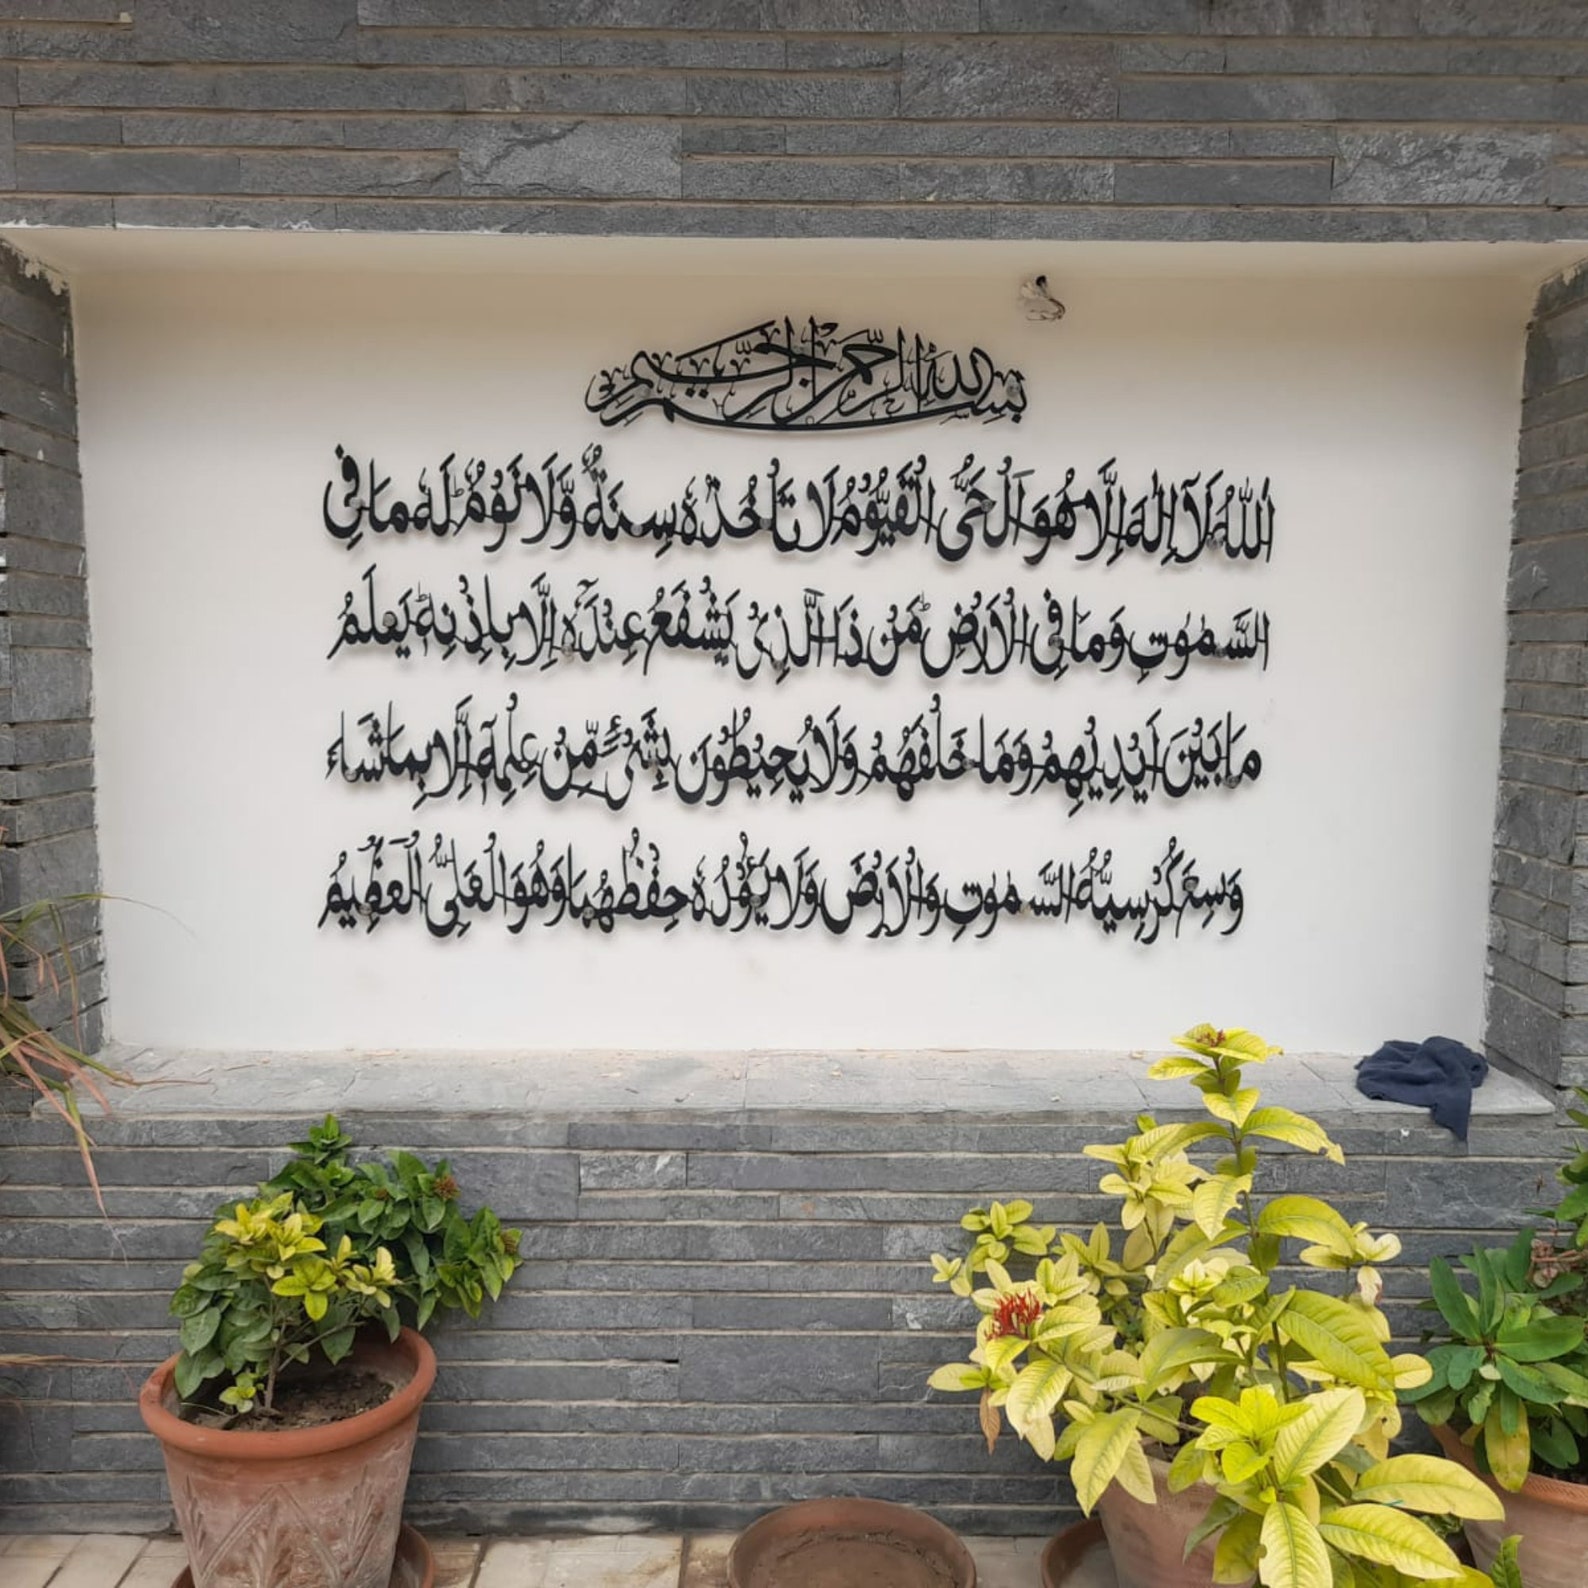 بِسْمِ اللهِ الرَّحْمٰنِ الرَّحِيْمِ
اَللّٰهُ لَآ اِلٰهَ اِلَّا هُوَ اَلْحَيُّ الْقَيُّوْمُ لَا تَاْخُذُهٗ سِنَةٌ وَّلَا نَوْمٌ ؕ لَهٗ مَا فِي
السَّمٰوٰتِ وَمَا فِي الْاَرْضِ ؕ مَنْ ذَا الَّذِيْ يَشْفَعُ عِنْدَهٗٓ اِلَّا بِاِذْنِهٖ ؕ يَعْلَمُ
مَا بَيْنَ اَيْدِيْهِمْ وَمَا خَلْفَهُمْ وَلَا يُحِيْطُوْنَ بِشَيْءٍ مِّنْ عِلْمِهٖٓ اِلَّا بِمَا شَاءَ
وَسِعَ كُرْسِيُّهُ السَّمٰوٰتِ وَالْاَرْضَ وَلَا يَـُٔوْدُهٗ حِفْظُهُمَا وَهُوَ الْعَلِيُّ الْعَظِيْمُ